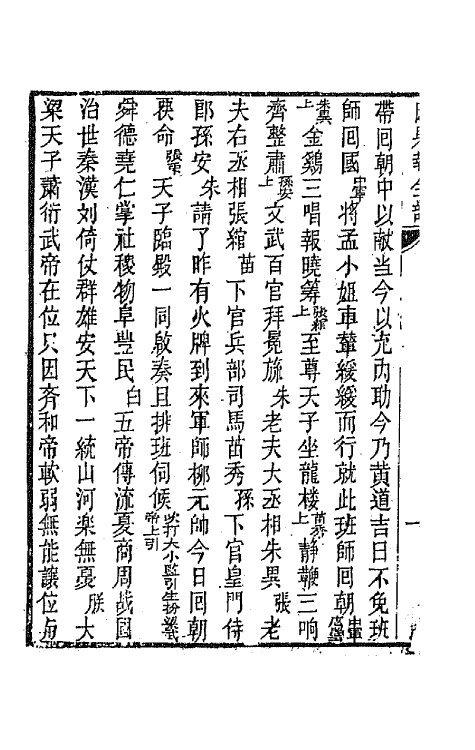 帶回朝中以献当今以充内助今乃黄道吉日不免班
師回國中軍将孟小姐車輦緩緩而行就此班師回朝中軍
上金鷄三唱報曉籌上至尊天子坐龍楼上静鞭三响
齊整肅上文武百官拜冕旒朱老夫大丞相朱異張老
夫右丞相張綰苗下官兵部司馬苗秀孫下官皇門侍
郎孫安朱請了昨有火牌到來軍師柳元帥今日回朝
候命天子臨殿一同啟奏且排班伺候
舜德堯仁掌社稷物阜豐民白五帝傳流夏商周战國
治世秦漢刘倚仗群雄安天下一統山河楽無憂朕大
梁天子蕭衍武帝在位只因齐和帝軟弱無能讓位与